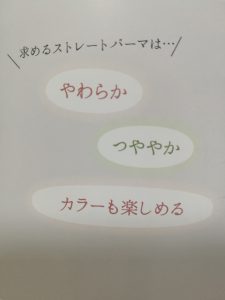 求めるストレートパーマは…
やわらか
つややか
カラーも楽しめる